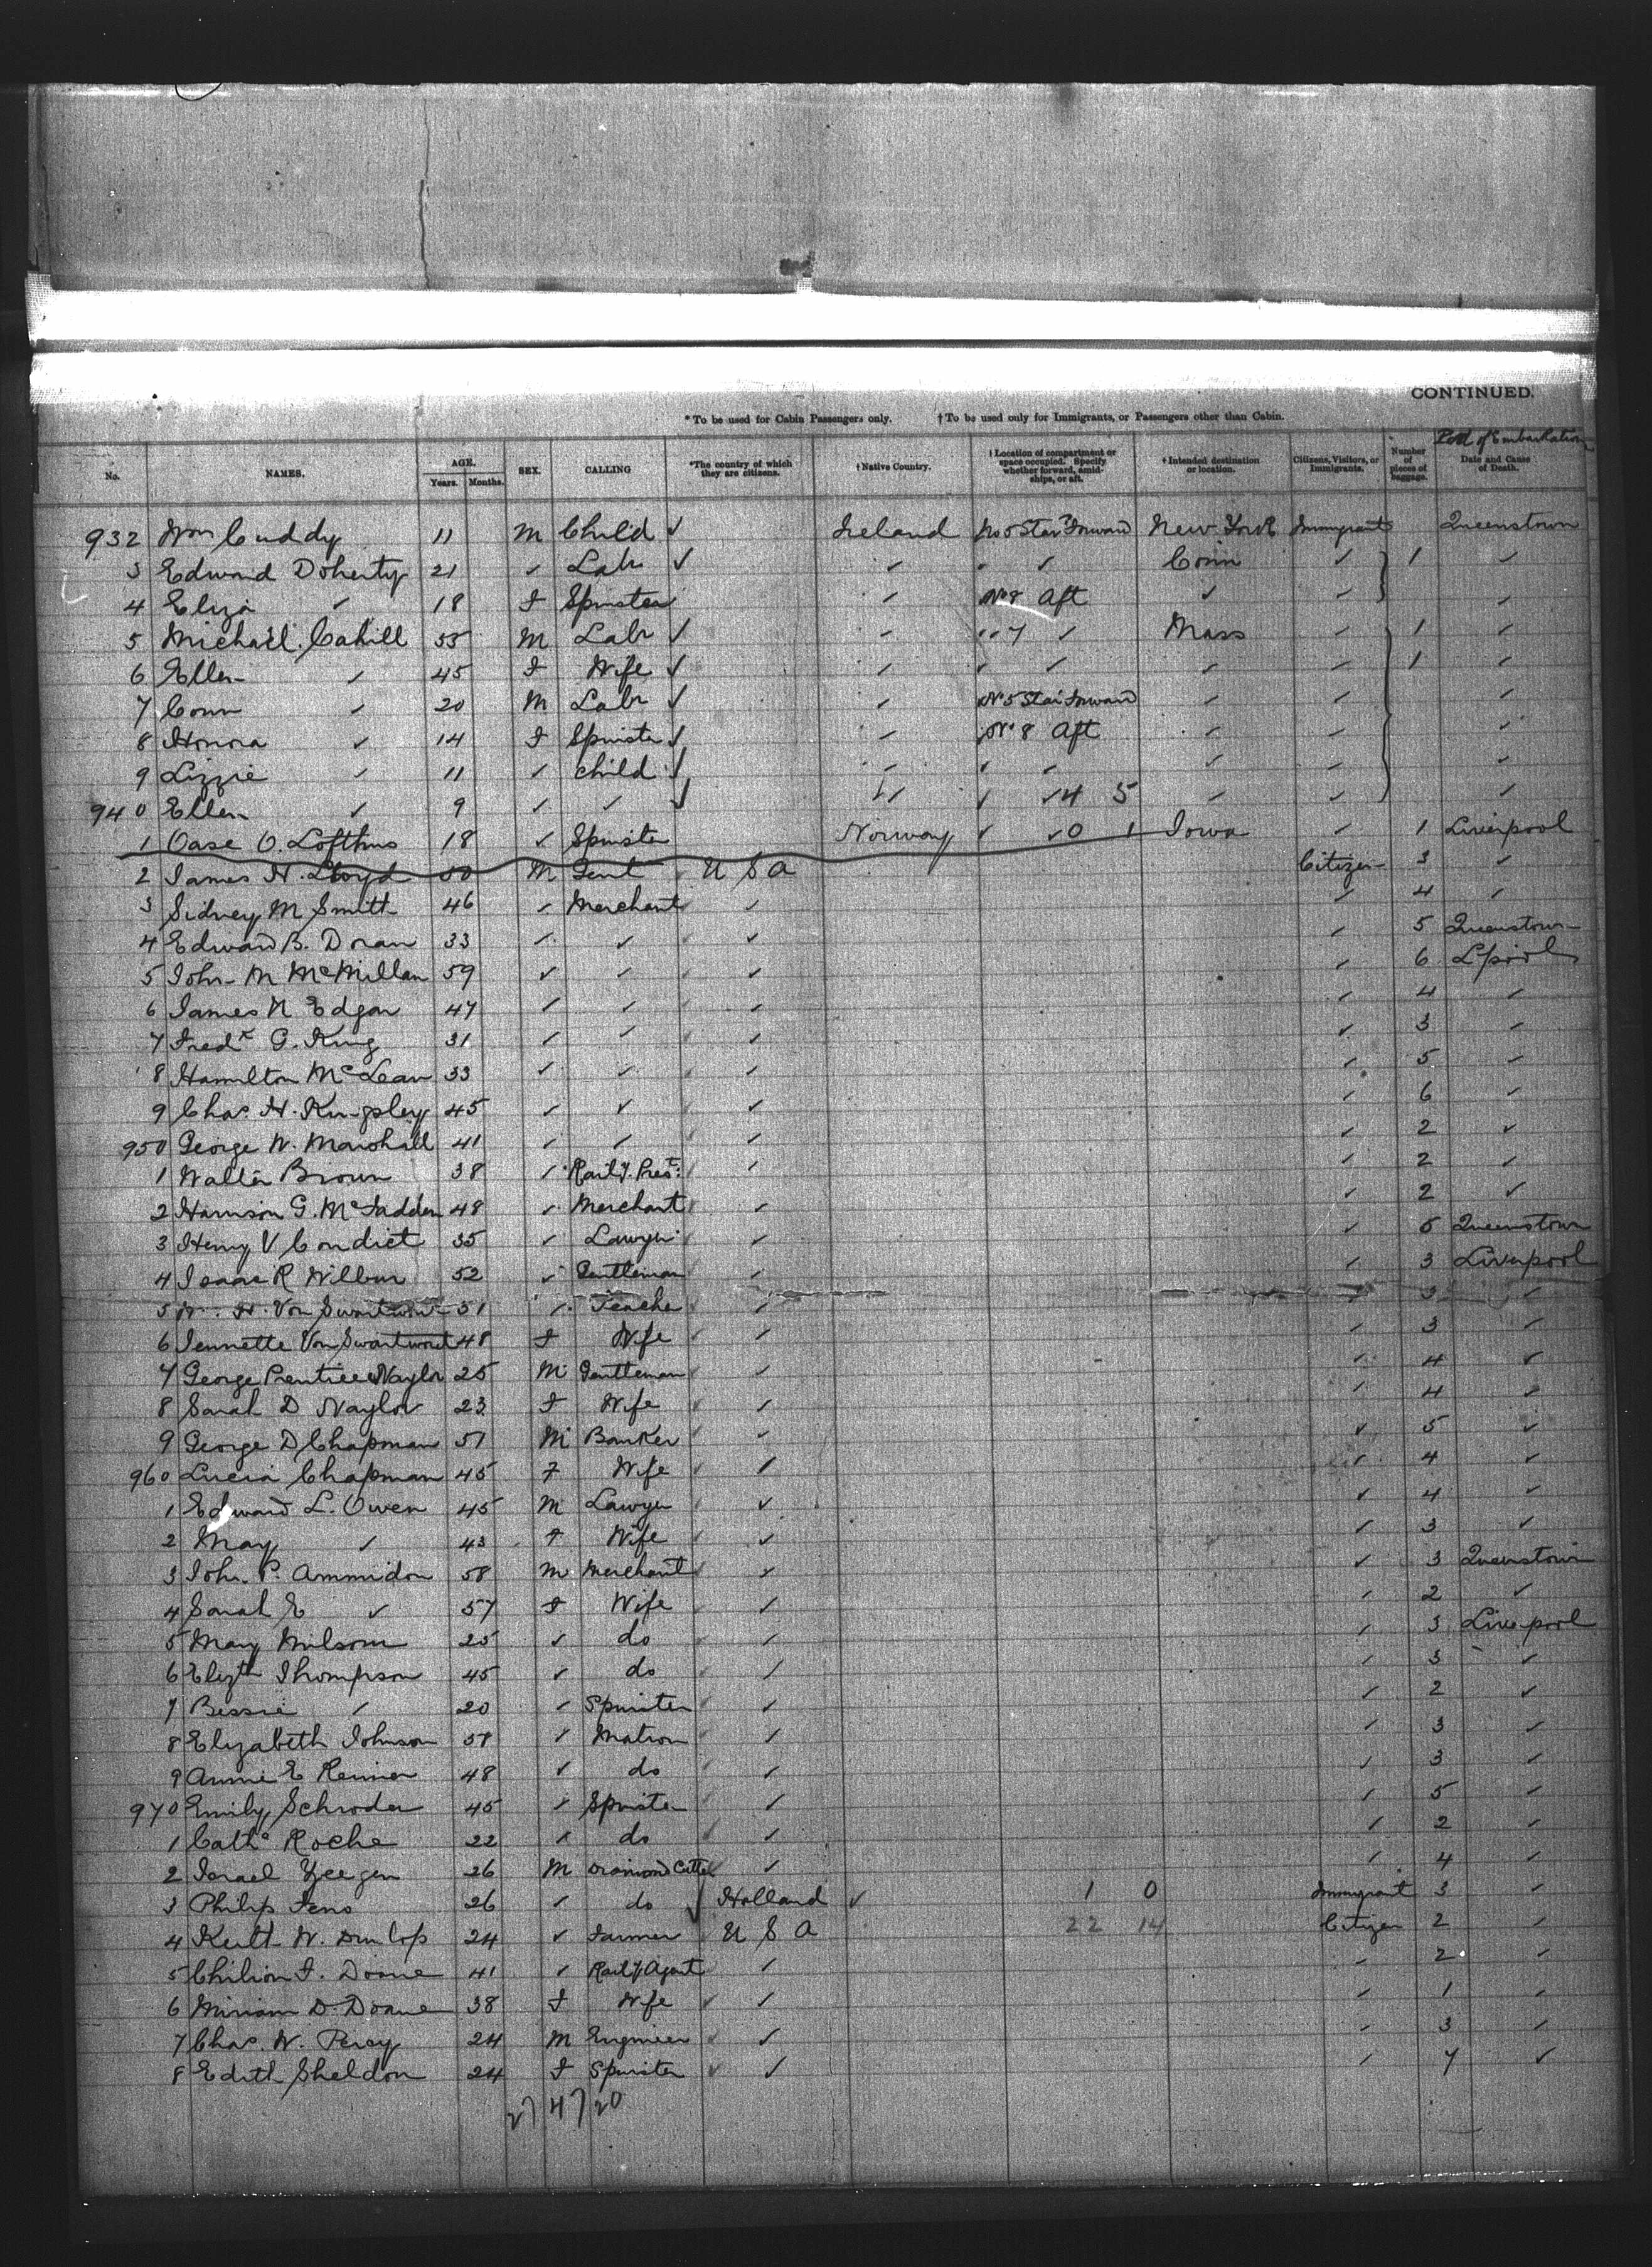 CONTINUED.
* To be used for Cabin Passengers only. † To be used only for Immigrants, or Passengers other than Cabin.
Port of Embarkation
No. NAMES. AGE. Years. Months. SEX. CALLING *The country of which they are citizens. † Native Country. † Location of compartment or space occupied. Specify whether forward, amidships, or aft. † Intended destination or location. Citizens, Visitors, or Immigrants. Number of pieces of baggage. Date and Cause of Death.
932 Wm Cuddy 11 M Child ✓ Ireland No 5 Star Forward New York Immigrant Queenstown
3 Edward Doherty 21 ✓ Labr ✓ ✓ ✓ ✓ Conn ✓ 1 ✓
4 Eliza ✓ 18 F Spinster ✓ No 8 Aft ✓ ✓ ✓
5 Michael Cahill 55 M Labr ✓ ✓ " 7 ✓ Mass ✓ 1 ✓
6 Ellen ✓ 45 F Wife ✓ ✓ ✓ ✓ ✓ ✓ 1 ✓
7 Conn ✓ 20 M Labr ✓ ✓ No 5 Star Forward ✓ ✓ ✓
8 Honora ✓ 14 F Spinster ✓ ✓ No 8 Aft ✓ ✓ ✓
9 Lizzie ✓ 11 ✓ child ✓ ✓ ✓ ✓ ✓ ✓ ✓
940 Ellen ✓ 9 ✓ ✓ ✓ ✓ ✓ ✓ 4 5 ✓ ✓ ✓
1 Oase O. Lofthus 18 ✓ Spinster Norway ✓ ✓ 0 1 Iowa ✓ 1 Liverpool
2 James H. Lloyd 50 M Gent U S A Citizen 3 ✓
3 Sidney M Smith 46 ✓ Merchant ✓ ✓ 4 ✓
4 Edward B. Doran 33 ✓ ✓ ✓ ✓ 5 Queenstown
5 John M McMillan 59 ✓ ✓ ✓ ✓ 6 L'pool
6 James N Edgar 47 ✓ ✓ ✓ ✓ 4 ✓
7 Fredk G. King 31 ✓ ✓ ✓ ✓ 3 ✓
8 Hamilton McLean 33 ✓ ✓ ✓ ✓ 5 ✓
9 Chas H. Kingsley 45 ✓ ✓ ✓ ✓ 6 ✓
950 George W. Marshall 41 ✓ ✓ ✓ ✓ 2 ✓
1 Walter Brown 38 ✓ Raily. Prest. ✓ ✓ 2 ✓
2 Harrison G. McFadden 48 ✓ Merchant ✓ ✓ 2 ✓
3 Henry V Condict 35 ✓ Lawyer ✓ ✓ 5 Queenstown
4 Isaac R Wilbur 52 ✓ Gentleman ✓ ✓ 3 Liverpool
5 H. Von Swartwout 51 ✓ Teacher ✓ ✓ 3 ✓
6 Jennette Von Swartwout 48 F Wife ✓ ✓ 3 ✓
7 George Prentice Naylor 25 M Gentleman ✓ ✓ 4 ✓
8 Sarah D Naylor 23 F Wife ✓ ✓ 4 ✓
9 George D Chapman 51 M Banker ✓ ✓ 5 ✓
960 Lucia Chapman 45 F Wife ✓ ✓ 4 ✓
1 Edward L. Owen 45 M Lawyer ✓ ✓ 4 ✓
2 May ✓ 43 F Wife ✓ ✓ 3 ✓
3 John P. Ammidon 58 M Merchant ✓ ✓ 3 Queenstown
4 Sarah E ✓ 57 F Wife ✓ ✓ 2 ✓
5 Mary Milsom 25 ✓ do ✓ ✓ 3 Liverpool
6 Elizth Thompson 45 ✓ do ✓ ✓ 3 ✓
7 Bessie ✓ 20 ✓ Spinster ✓ ✓ 2 ✓
8 Elizabeth Johnson 58 ✓ Matron ✓ ✓ 3 ✓
9 Annie E Renner 48 ✓ do ✓ ✓ 3 ✓
970 Emily Schroder 45 ✓ Spinster ✓ ✓ 5 ✓
1 Cathe Roche 22 ✓ do ✓ ✓ 2 ✓
2 Israel 26 M Diamond Cutter ✓ ✓ 4 ✓
3 Philip Fens 26 ✓ do ✓ Holland ✓ 1 0 Immigrant 3 ✓
4 Keith W. Dunlop 24 ✓ Farmer U S A 22 14 Citizen 2 ✓
5 Chilion F. Doane 41 ✓ Raily Agent ✓ ✓ 2 ✓
6 Miriam D. Doane 38 F Wife ✓ ✓ 1 ✓
7 Chas. W. Percy 24 M Engineer ✓ ✓ 3 ✓
8 Edith Sheldon 24 F Spinster ✓ ✓ 7 ✓
27 47 20